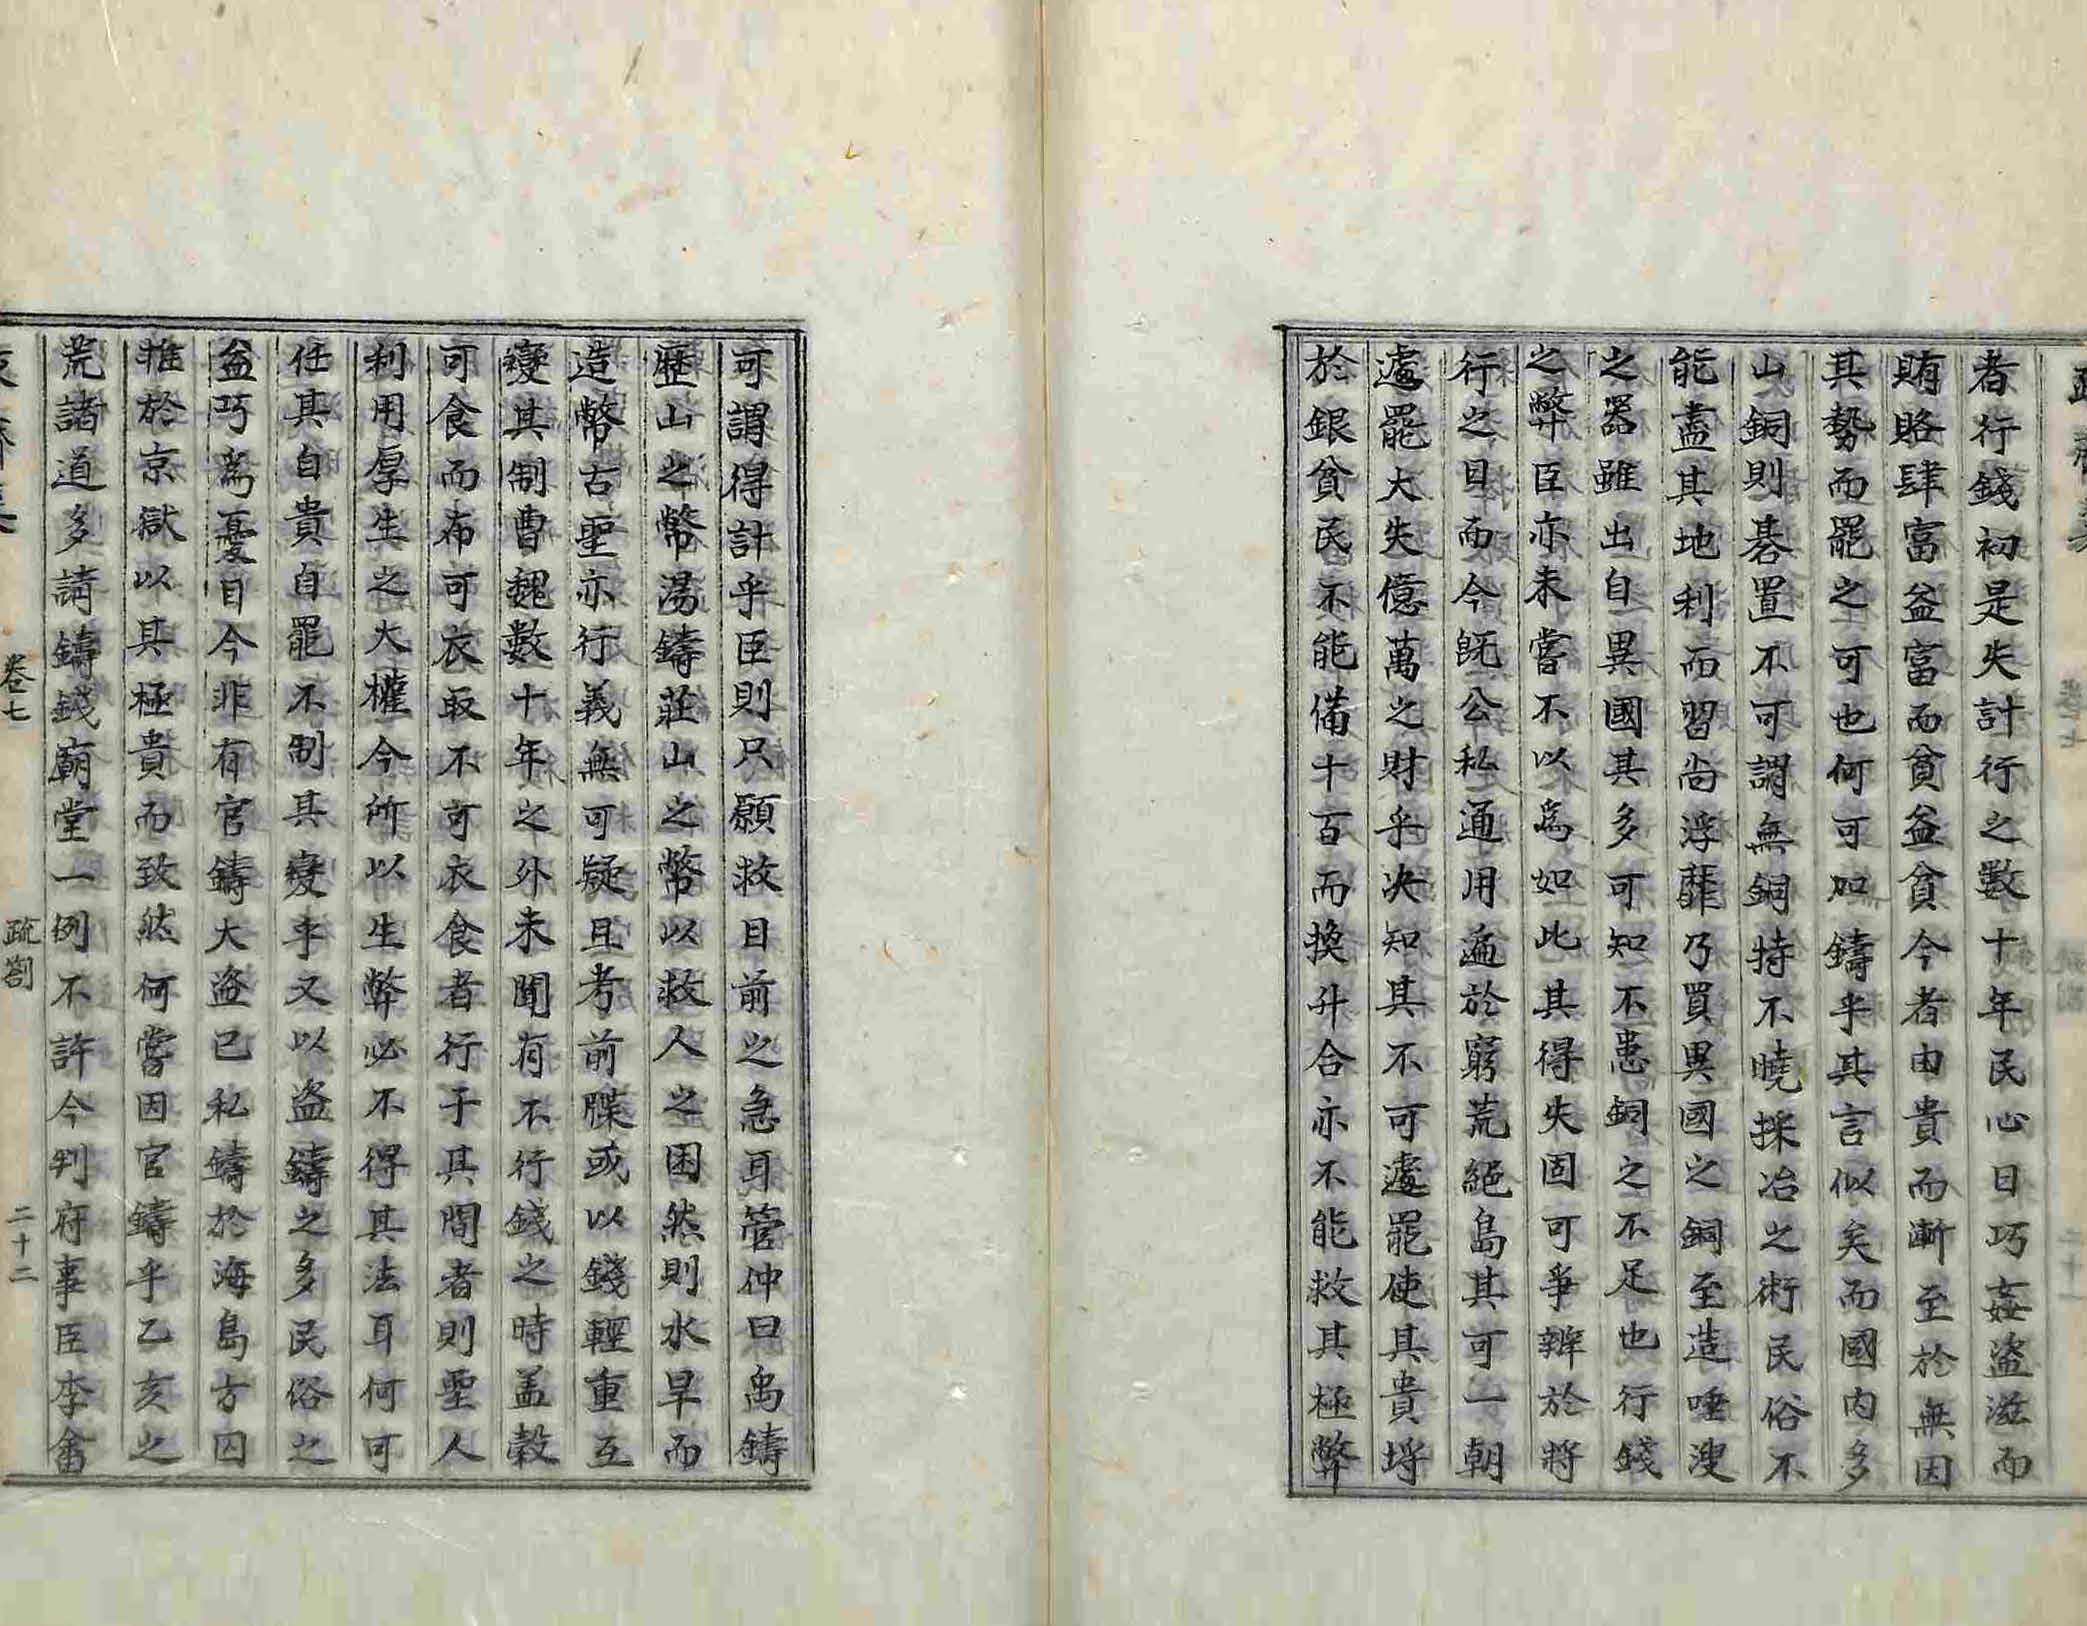 者行錢初是失計行之數十年民心日巧姦盜滋而
賄賂肆富益富而貧益貧今者由貴而漸至於無因
其勢而罷之可也何可如鑄乎其言似矣而國內多
山銅則碁置不可謂無銅特不曉採冶之術民俗不
能盡其地利而習尙浮靡乃買異國之銅至造唾溲
之器雖出自異國其多可知不患銅之不足也行錢
之弊臣亦未嘗不以爲如此其得失固可爭辨於將
行之日而今旣公私通用遍於窮荒絕島其可一朝
遽罷大失億萬之財乎决知其不可遽罷使其貴埒
於銀貧民不能備十百而換升合亦不能救其極弊
可謂得計乎臣則只願救目前之急耳管仲曰禹鑄
歷山之幣湯鑄莊山之幣以救人之困然則水旱而
造幣古聖亦行義無可疑且考前牒或以錢輕重互
變其制曹魏數十年之外未聞有不行錢之時盖穀
可食而布可衣取不可衣食者行于其間者則聖人
利用厚生之大權今所以生弊必不得其法耳何可
任其自貴自罷不制其變乎又以盜鑄之多民俗之
益巧爲憂目今非有官鑄大盜已私鑄於海島方囚
推於京獄以其極貴而致然何嘗因官鑄乎乙亥之
荒諸道多請鑄錢廟堂一例不許今判府事臣李畬
卷七 疏劄 二十二